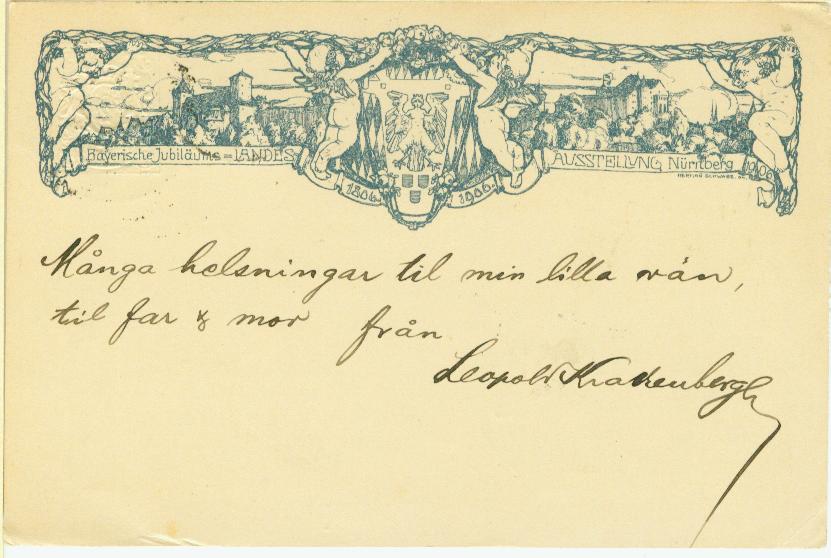 Bayerische Jubiläums=LANDES
AUSSTELLUNG Nürnberg 1906
1806. 1906.
Många helsningar til min lilla vän,
til far & mor från
Leopold Krakenbergh